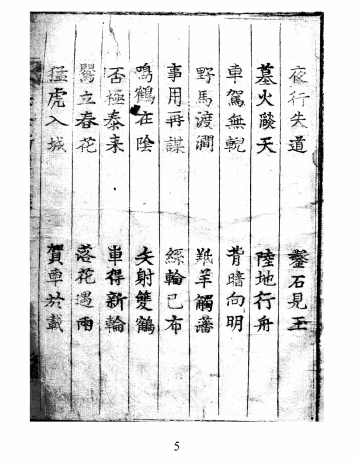 夜行失道　鑿石見玉
墓火燄天　陸地行舟
車駕無輗　背暗向明
野馬渡澗　羝羊觸藩
事用再謀　輪已布
鳴鶴在陰　矢射雙鶴
否極泰来　車得新輪
立春花　落花遇雨
猛虎入城　賀車於載
5